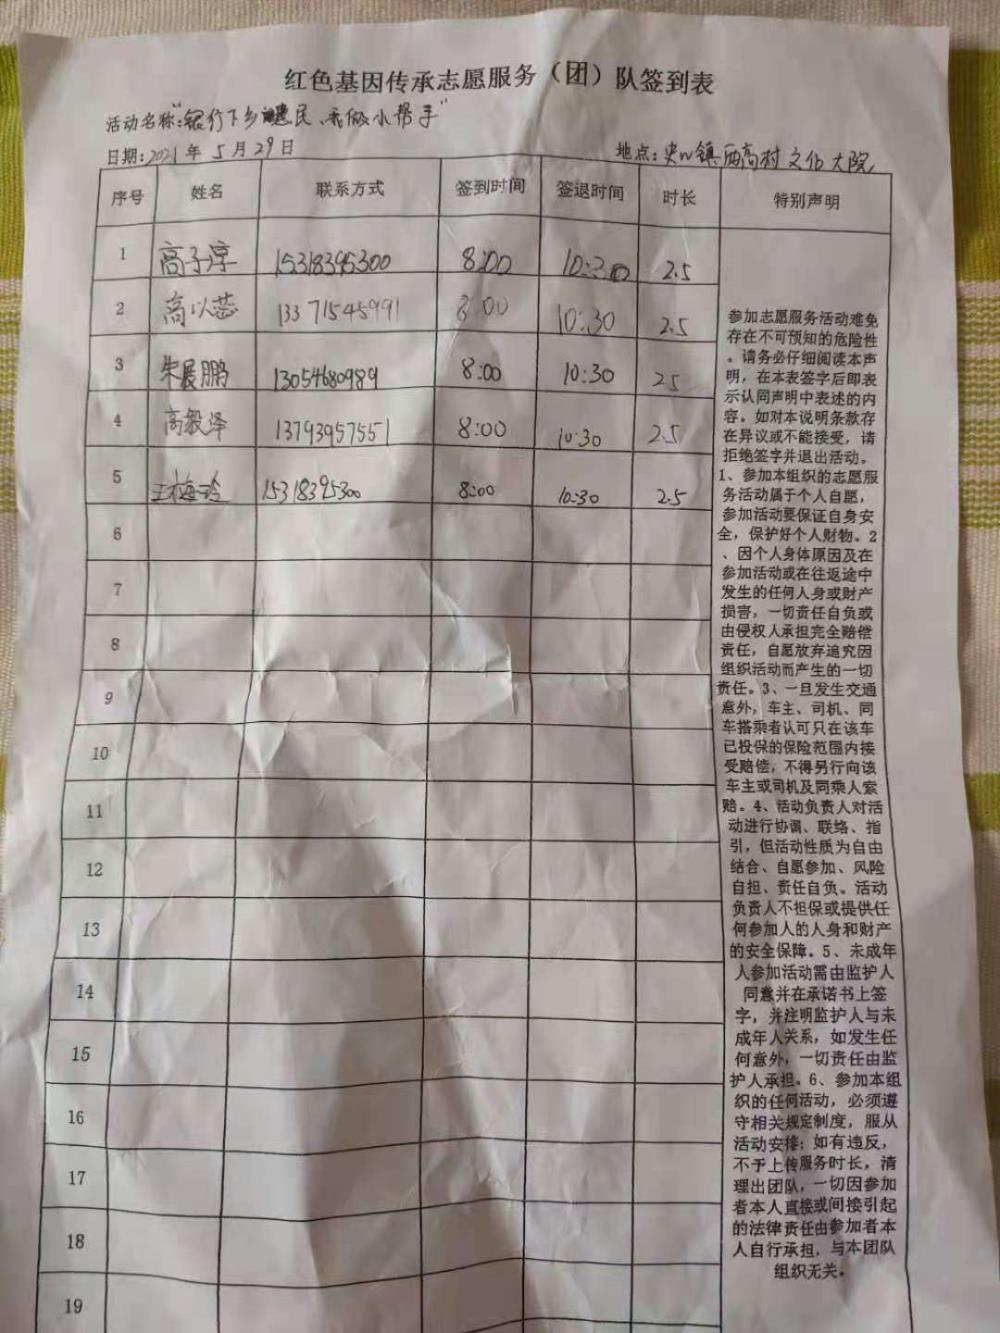 红色基因传承志愿服务（团）队签到表
活动名称：“银行下乡惠民、我做小帮手”
日期：2021年5月29日 地点：史山镇西高村文化大院
序号 姓名 联系方式 签到时间 签退时间 时长 特别声明
1 高子淳 15318395300 8:00 10:30 2.5
2 高以蕊 13371545991 8:00 10:30 2.5
3 朱展鹏 13054680989 8:00 10:30 2.5
4 高毅泽 13793957551 8:00 10:30 2.5
5 王梅玲 15318395300 8:00 10:30 2.5
6
7
8
9
10
11
12
13
14
15
16
17
18
19
参加志愿服务活动难免
存在不可预知的危险性
。请务必仔细阅读本声
明，在本表签字后即表
示认同声明中表述的内
容。如对本说明条款存
在异议或不能接受，请
拒绝签字并退出活动。
1、参加本组织的志愿服
务活动属于个人自愿，
参加活动要保证自身安
全，保护好个人财物。2
、因个人身体原因及在
参加活动或在往返途中
发生的任何人身或财产
损害，一切责任自负或
由侵权人承担完全赔偿
责任，自愿放弃追究因
组织活动而产生的一切
责任。3、一旦发生交通
意外，车主、司机、同
车搭乘者认可只在该车
已投保的保险范围内接
受赔偿，不得另行向该
车主或司机及同乘人索
赔。4、活动负责人对活
动进行协调、联络、指
引，但活动性质为自由
结合、自愿参加、风险
自担、责任自负。活动
负责人不担保或提供任
何参加人的人身和财产
的安全保障。5、未成年
人参加活动需由监护人
同意并在承诺书上签
字，并注明监护人与未
成年人关系，如发生任
何意外，一切责任由监
护人承担。6、参加本组
织的任何活动，必须遵
守相关规定制度，服从
活动安排；如有违反，
不予上传服务时长，清
理出团队，一切因参加
者本人直接或间接引起
的法律责任由参加者本
人自行承担，与本团队
组织无关。